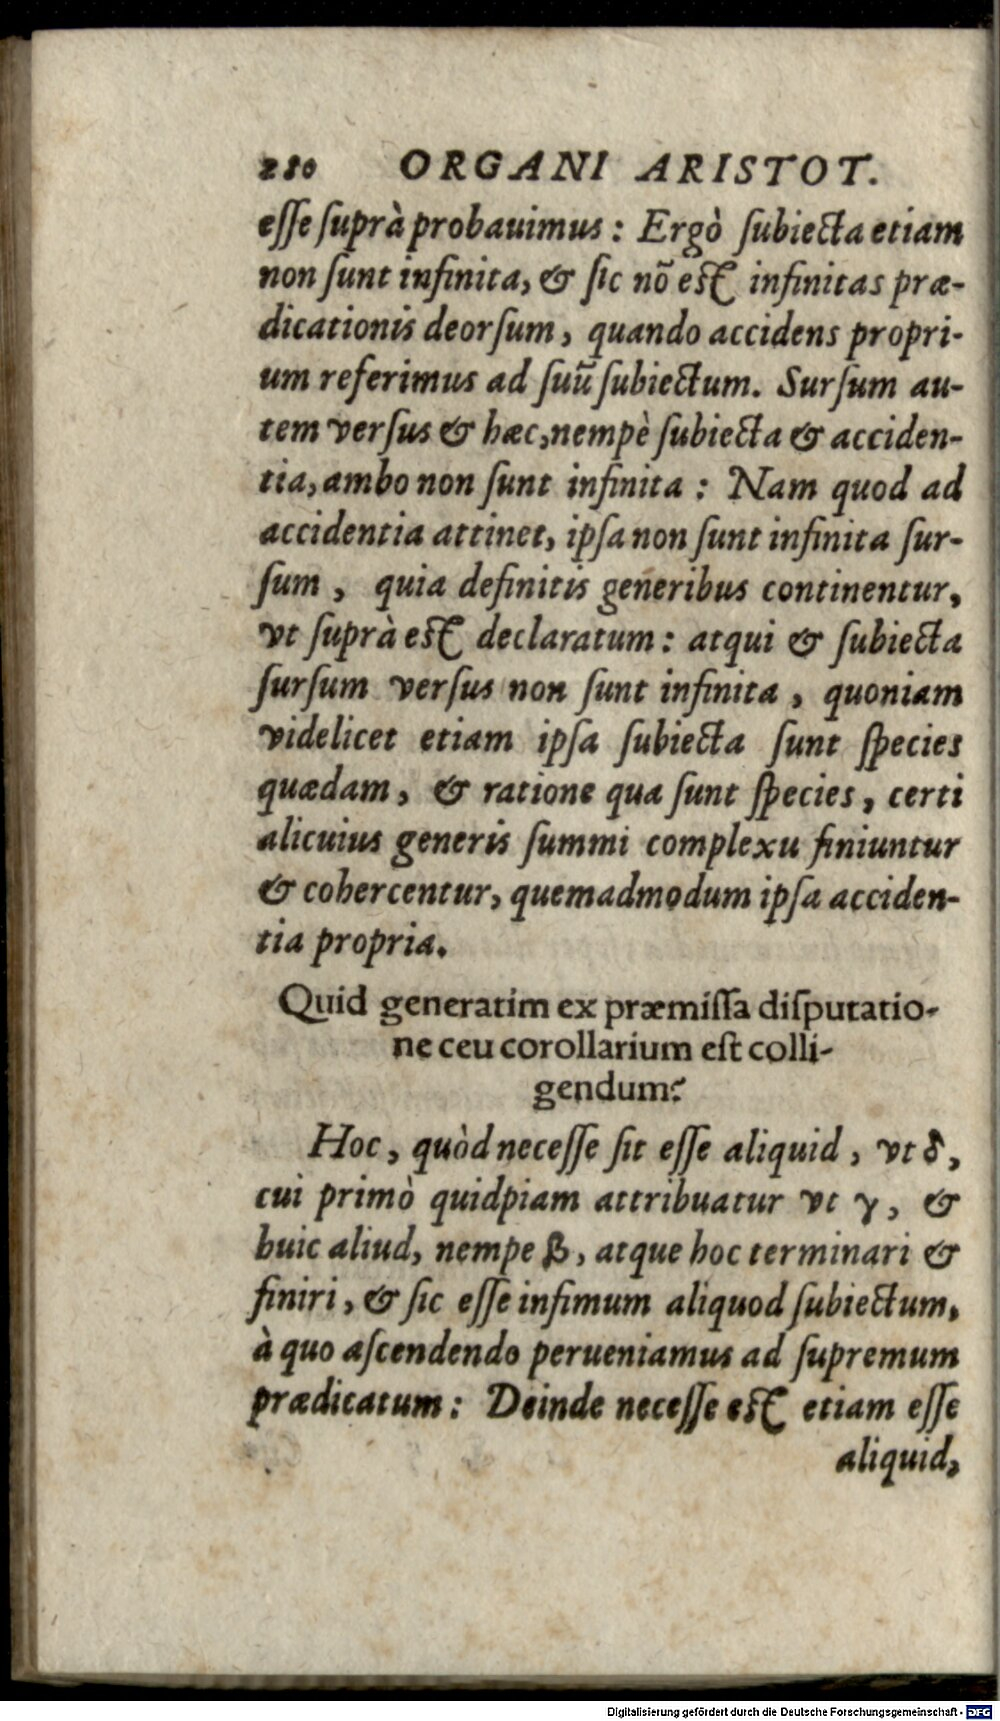 280 ORGANI ARISTOT.
esse suprà probauimus : Ergò subiecta etiam
non sunt infinita, & sic nō est infinitas præ-
dicationis deorsum, quando accidens propri-
um referimus ad suū subiectum. Sursum au-
tem versus & hæc, nempè subiecta & acciden-
tia, ambo non sunt infinita : Nam quod ad
accidentia attinet, ipsa non sunt infinita sur-
sum, quia definitis generibus continentur,
vt suprà est declaratum : atqui & subiecta
sursum versus non sunt infinita, quoniam
videlicet etiam ipsa subiecta sunt species
quædam, & ratione qua sunt species, certi
alicuius generis summi complexu finiuntur
& cohercentur, quemadmodum ipsa acciden-
tia propria.
Quid generatim ex præmissa disputatio-
ne ceu corollarium est colli-
gendum?
Hoc, quòd necesse sit esse aliquid, vt δ,
cui primò quidpiam attribuatur vt γ, &
huic aliud, nempe β, atque hoc terminari &
finiri, & sic esse infimum aliquod subiectum,
à quo ascendendo perueniamus ad supremum
prædicatum : Deinde necesse est etiam esse
aliquid,
Digitalisierung gefördert durch die Deutsche Forschungsgemeinschaft - DFG